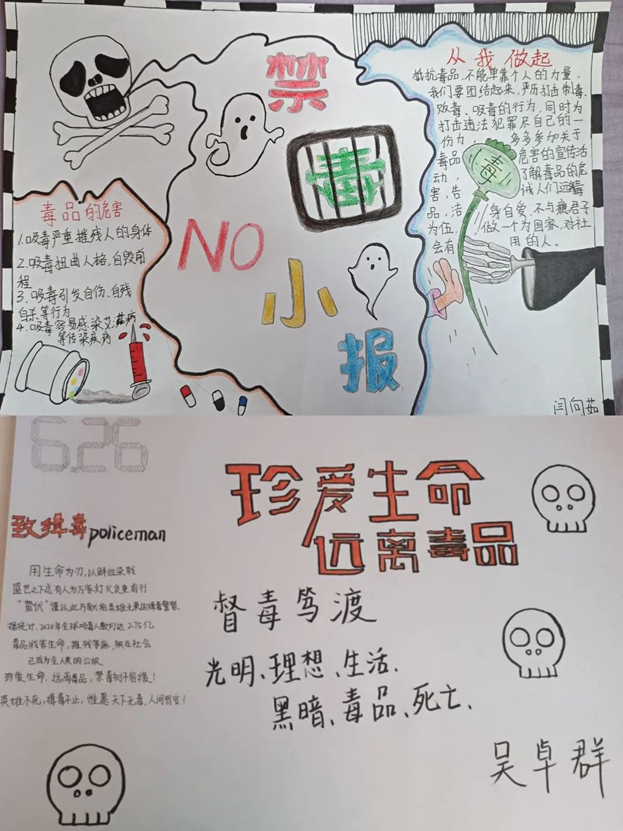 禁
毒
NO
小
报
从我做起
抵抗毒品,不能单靠个人的力量,
我们要团结起来,严厉打击制毒,
贩毒、吸毒的行为,同时为
打击违法犯罪尽自己的一
份力 多多参加关于
毒品 危害的宣传活
动, 了解毒品的危
害,告 诫人们远离毒
品,洁 身自爱,不与瘾君子
为伍, 做一个为国家、对社
会有 用的人。
毒
毒品的危害
1.吸毒严重摧残人的身体
2.吸毒扭曲人格,自毁前
程
3.吸毒引发自伤、自残
自杀等行为
4.吸毒容易感染艾滋病
等传染疾病
闫向茹
6.26
珍爱生命
远离毒品
致缉毒policeman
用生命为刃,以鲜血染就
盛世之下总有人为万家灯火负重前行
据统计,2020年全球吸毒人数约达2.75亿
毒品戕害生命,摧残家庭,祸及社会
已成为全人类的公敌
珍爱生命,远离毒品,禁毒刻不容缓!
英雄不死,缉毒不止,惟愿天下无毒,人间皆安!
督毒笃渡
光明、理想、生活、
黑暗、毒品、死亡、
吴卓群